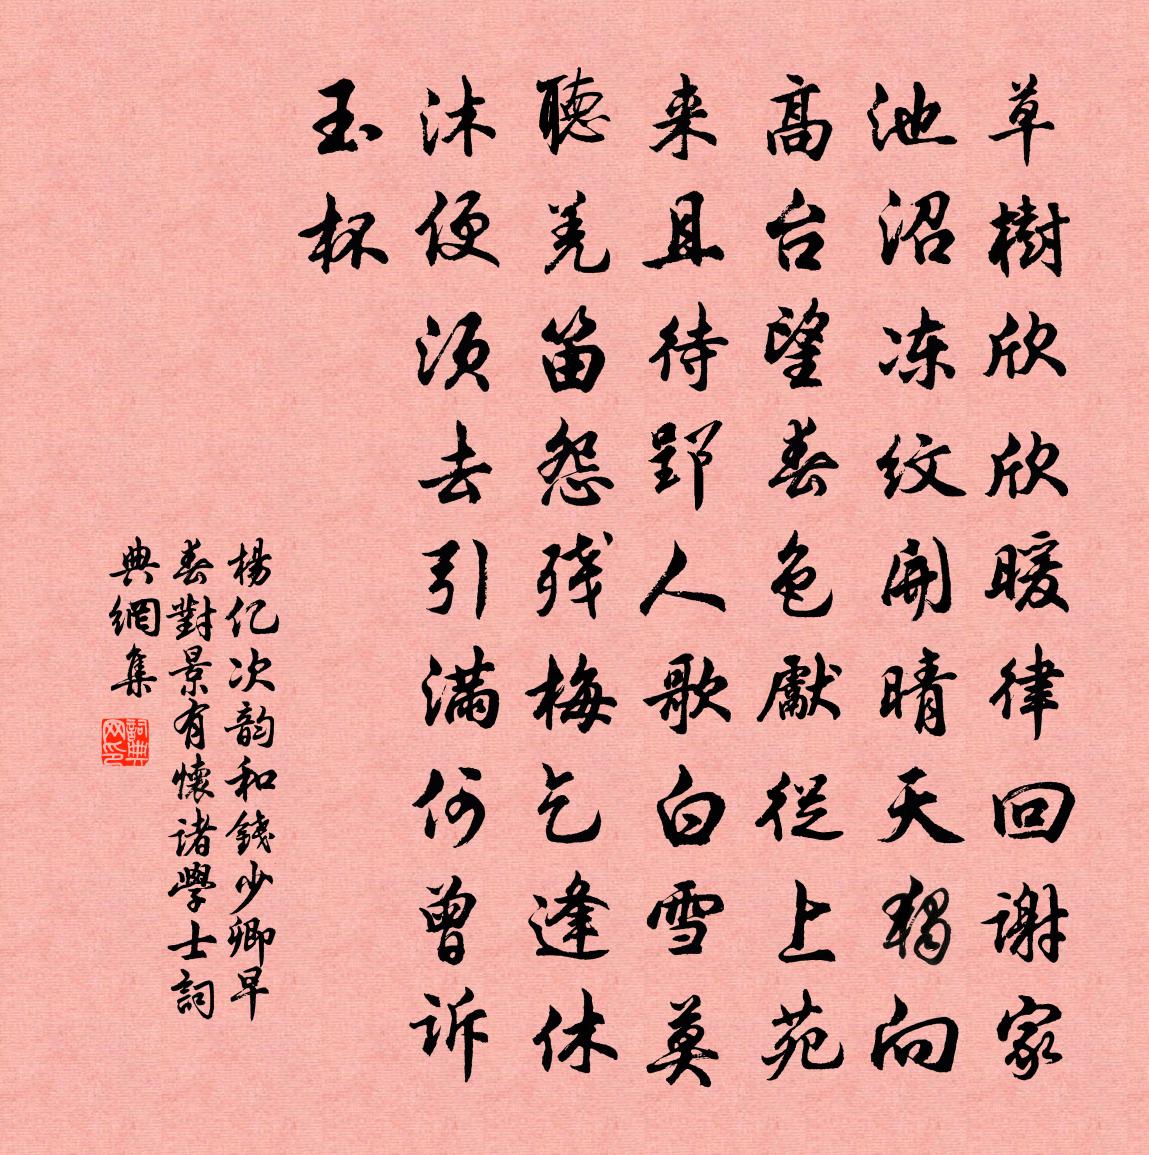 草樹欣欣暖律回謝家
池沼冻纹開晴天獨向
高台望春色獻從上苑
来且待郢人歌白雪莫
聽羌笛怨残梅乞逢休
沐便须去引满何曾诉
玉杯
楊亿次韵和錢少卿早
春對景有懷诸學士詞
典網集
詞典网印